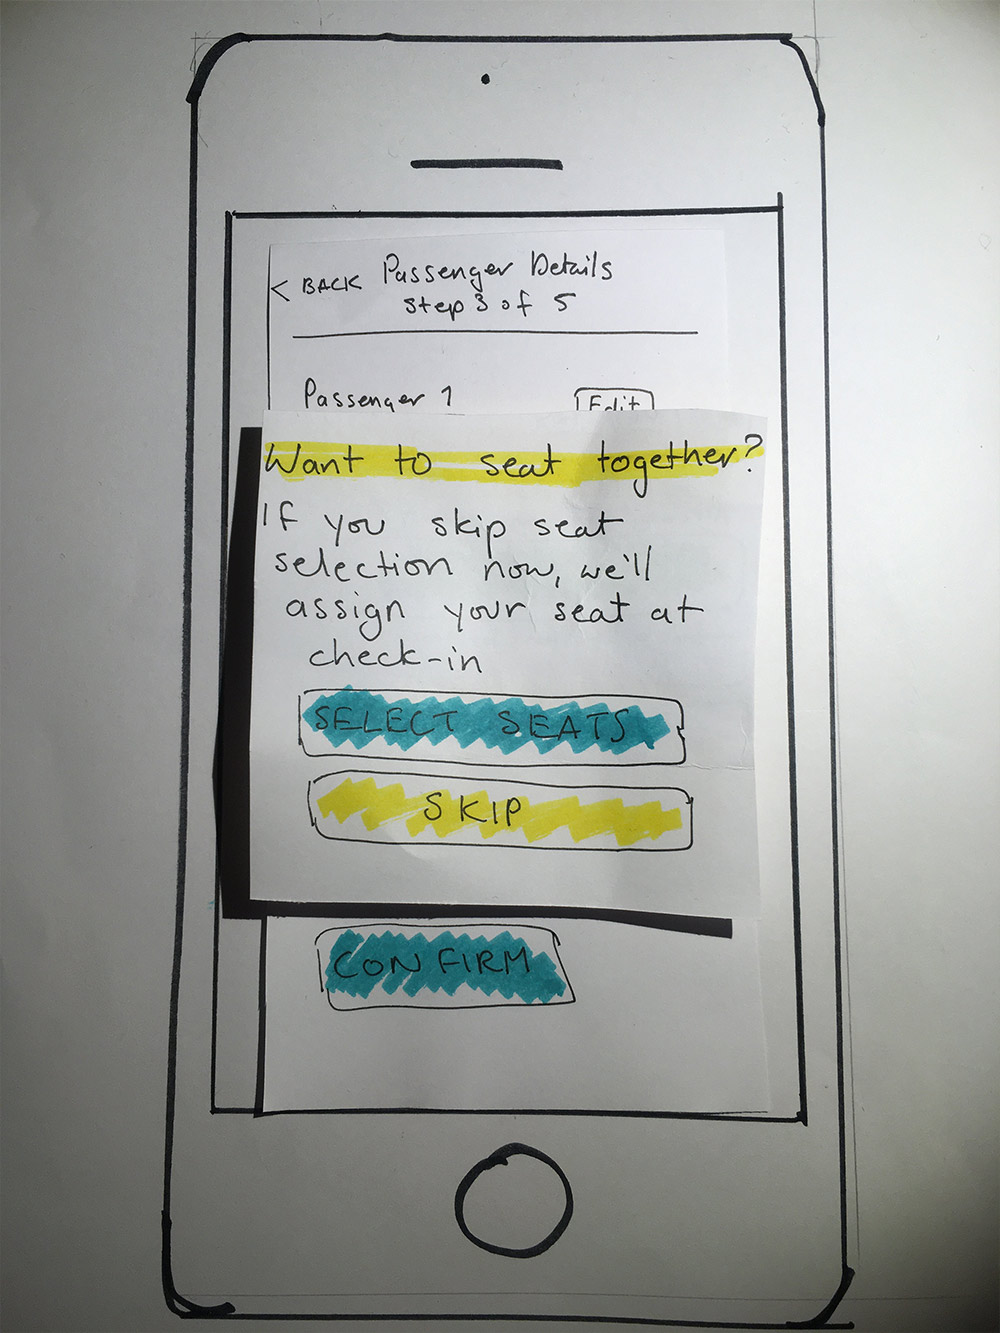 < BACK Passenger Details
Step 3 of 5
Passenger 1 Edit
Want to seat together?
If you skip seat
selection now, we'll
assign your seat at
check-in
SELECT SEATS
SKIP
CONFIRM